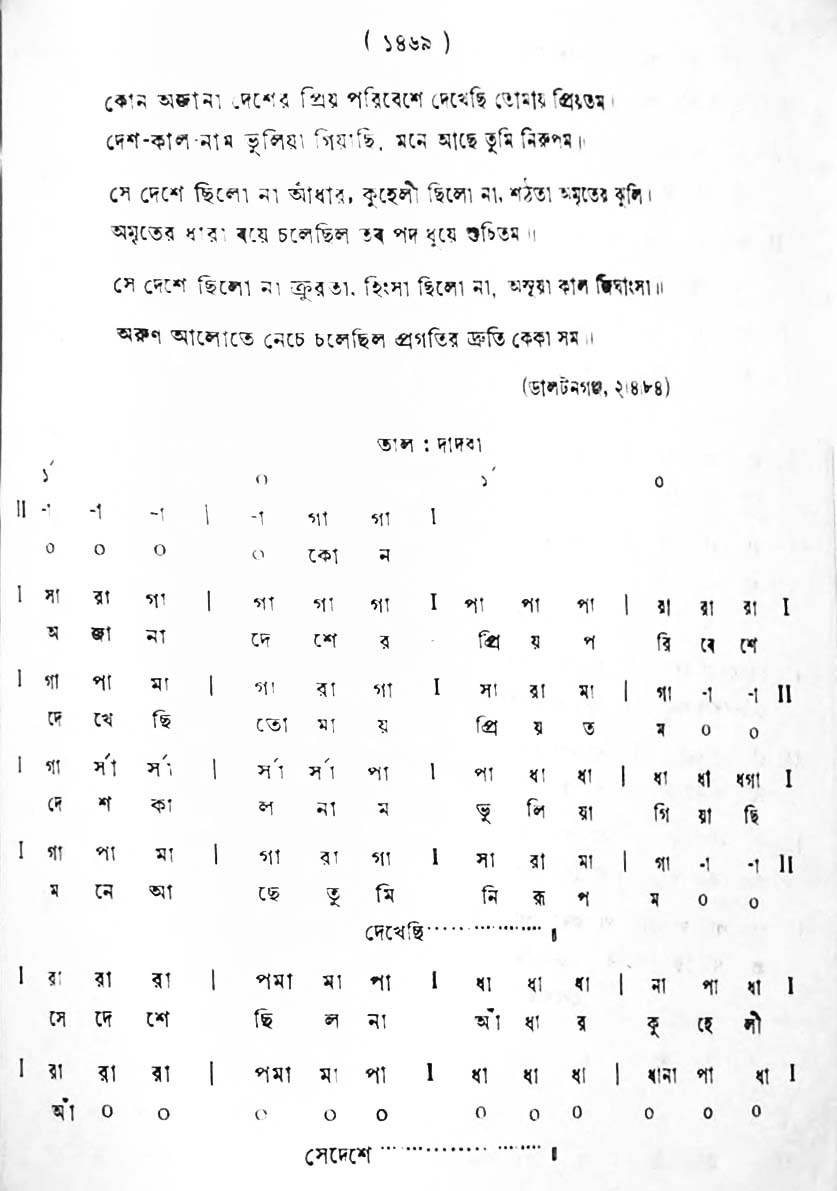 ( ১৪৬৯ )
কোন অজানা দেশের প্রিয় পরিবেশে দেখেছি তোমায় প্রিয়তম।
দেশ-কাল-নাম ভুলিয়া গিয়াছি, মনে আছে তুমি নিরুপম॥
সে দেশে ছিলো না আঁধার, কুহেলী ছিলো না, শঠতা অমৃতের ঝুলি।
অমৃতের ধারা বয়ে চলেছিল তব পদ ধুয়ে শুচিতম॥
সে দেশে ছিলো না ক্রুরতা, হিংসা ছিলো না, অসূয়া কাল জিঘাংসা॥
অরুণ আলোতে নেচে চলেছিল প্রগতির দ্রুতি কেকা সম॥
(ডালটনগঞ্জ, ২৷৪৷৮৪)
তাল : দাদরা
১´ ০ ১´ ০
II -া -া -া | -া গা গা I
০ ০ ০ ০ কো ন
I সা রা গা | গা গা গা I পা পা পা | রা রা রা I
অ জা না দে শে র প্রি য় প রি বে শে
I গা পা মা | গা রা গা I সা রা মা | গা -া -া II
দে খে ছি তো মা য় প্রি য় ত ম ০ ০
I গা র্সা র্সা | র্সা র্সা পা I পা ধা ধা | ধা ধা ধগা I
দে শ কা ল না ম ভু লি য়া গি য়া ছি
I গা পা মা | গা রা গা I সা রা মা | গা -া -া II
ম নে আ ছে তু মি নি রূ প ম ০ ০
দেখেছি·················॥
I রা রা রা | পমা মা পা I ধা ধা ধা | না পা ধা I
সে দে শে ছি ল না আঁ ধা র কু হে লী
I রা রা রা | পমা মা পা I ধা ধা ধা | ধানা পা ধা I
আঁ ০ ০ ০ ০ ০ ০ ০ ০ ০ ০ ০
সেদেশে·················॥